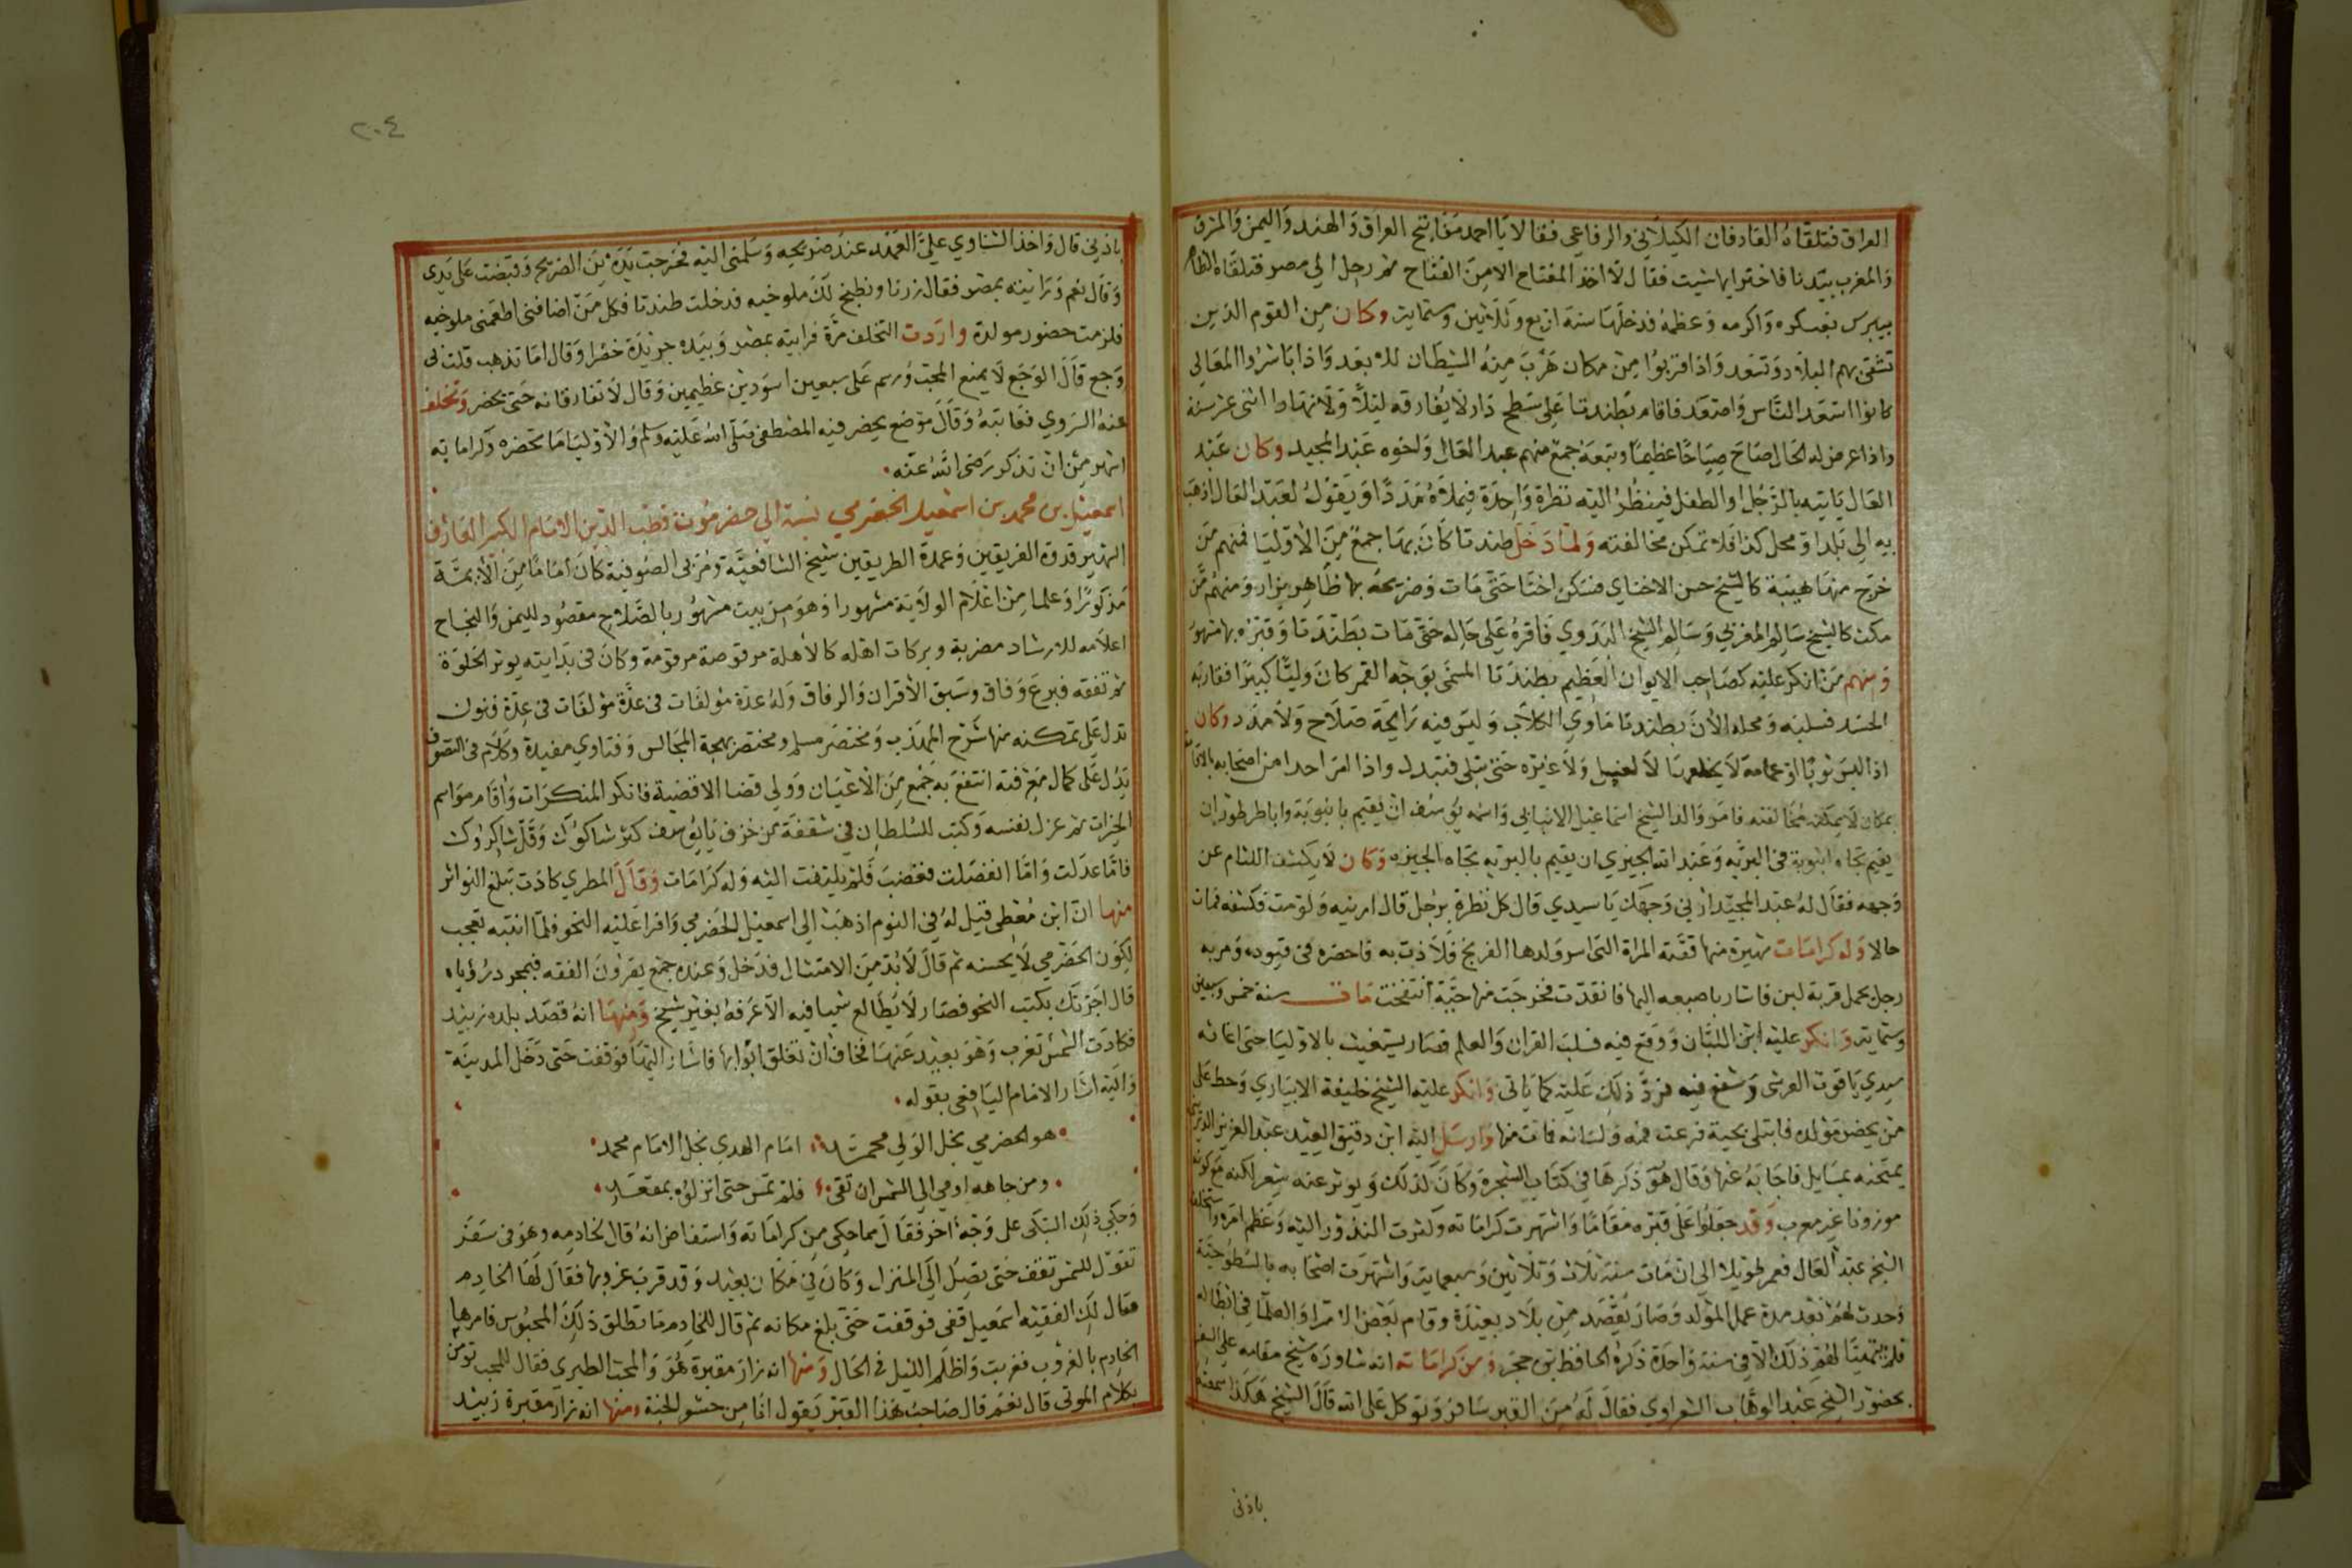 العراق فتلقاه العارفان الكيلاني والرفاعي فقالا يا احمد مفاتيح العراق والهند واليمن والمشرق
والمغرب بيدنا فاختر ايها شيت فقال لا اخذ المفتاح الا من الفتاح ثم رحل الى مصر فتلقاه الظاهر
بيبرس بعسكره واكرمه وعظمه فدخلها سنة اربع وثلاثين وستمايت وكان من القوم الذين
تشقى بهم البلاد وتسعد واذا قربوا من مكان هرب منه الشيطان للابعد واذا باشروا المعالي
كانوا اسعد الناس واصعد فاقام بطندتا على سطح دار لا يفارقه ليلا ولا نهارا اثنى عشر سنة
واذا عرض له الحال صاح صياحا عظيما وتبعه جمع منهم عبد العال واخوه عبد المجيد وكان عبد
العال ياتيه بالرجل او الطفل فينظر اليه نظرة واحدة فيملاه مددا ويقول لعبد العال اذهب
به الى بلد او محل كذا فلا تمكن مخالفته ولما دخل طندتا كان بها جمع من الاوليا فمنهم من
خرج منها هيبة كالشيخ حسن الاخناي فسكن اخنا حتى مات وضريحه بها ظاهر يزار ومنهم من
مكث كالشيخ سالم المغربي وسالم الشيخ البدوي فاقره على حاله حتى مات بطندتا وقبره بها مشهور
ومنهم من انكر عليه كصاحب الايوان العظيم بطندتا المسمى بوجه القمر كان وليا كبيرا فثار به
الحسد فسلبه ومحله الان بطندتا ماوي الكلاب وليس فيه رايحة صلاح ولا مدد وكان
اذا لبس ثوبا او عمامة لا يخلعها لا لغسل ولا غيره حتى تبلى فتبدل واذا امر احدا من اصحابه بالاقامة
بمكان لا يمكنه مخالفته فامر والد الشيخ اسماعيل الانبابي واسمه يوسف ان يقيم بانبوبة وابا طرطور ان
يقيم تجاه انبوبة في البرية وعبد الله الجيزي ان يقيم بالبرية تجاه الجيزه وكان لا يكشف اللثام عن
وجهه فقال له عبد المجيد ارني وجهك يا سيدي قال كل نظرة برجل قال ارنيه ولو مت فكشفه فمات
حالا وله كرامات شهيرة منها قصة المراة التي اسر ولدها الفرنج فلاذت به فاحضره في قيوده ومر به
رجل يحمل قربة لبن فاشار باصبعه اليها فانقدت فخرجت منها حية انتفخت مات سنة خمس وسبعين
وستمايت وانكر عليه ابن اللبان ووقع فيه فسلب القران والعلم فصار يستغيث بالاوليا حتى اغاثه
سيدي ياقوت العرشي وشفع فيه فرد ذلك عليه كما ياتي وانكر عليه الشيخ خليفة الابياري وحط على
من يحضر مولده فابتلى بحية فرعت فمه ولسانه فمات منها وارسل اليه ابن دقيق العيد عبد العزيز الدريني
يمتحنه بمسايل فاجابه عنها وقال هو ذكرها في كتاب الشجرة وكان كذلك ويوثر عنه شعر لكنه مع كونه
موزونا غير معرب وقد جعلوا على قبره مقاما واشتهرت كراماته وكثرت النذور اليه وعظم امره واستخلف
الشيخ عبد العال فعمر طويلا الى ان مات سنة ثلاث وثلاثين وسبعمايت واشتهرت اصحابه بالسطوحية
وحدث لهم بعد مدة عمل المولد وصار يقصد من بلاد بعيدة وقام بعض الامرا والعلما في ابطاله
فلم يتهيا لهم ذلك الا في سنة واحدة ذكره الحافظ بن حجر ومن كراماته انه شاوره شيخ مقامه على السفر
بحضور الشيخ عبد الوهاب الشعراوي فقال له من القبر سافر وتوكل على الله قال الشيخ هكذا سمعته
باذني
٢٠٤
باذني قال واخذ الشناوي علي العهد عند ضريحه وسلمني اليه فخرجت يده من الضريح وقبضت على يدي
وقال نعم ورايته بمصر فقال زرنا ونطبخ لك ملوخيه فدخلت طندتا فكل من اضافني اطعمني ملوخيه
فلزمت حضور مولده واردت التخلف مرة فرايته بمصر وبيده جريدة خضرا وقال اما تذهب قلت لي
وجع قال الوجع لا يمنع المحب ورسم على سبعين اسودين عظيمين وقال لا تفارقانه حتى يحضر وتخلف
عنه السروي فعاتبه وقال موضع يحضر فيه المصطفى صلى الله عليه وسلم والاوليا ما تحضره وكراماته
اشهر من ان تذكر رضي الله عنه
اسمعيل بن محمد بن اسمعيل الحضرمي نسبة الى حضرموت قطب الدين الامام الكبير العارف
الشهير قدوة الفريقين وعمدة الطريقين شيخ الشافعية ومربى الصوفية كان اماما من الايمة
مذكورا وعلما من اعلام الولاية مشهورا وهو من بيت مشهور بالصلاح مقصود لليمن والنجاح
اعلامه للارشاد مضربة وبركات اهله كالاهلة مرقومة وكان في بدايته يوثر الخلوة
ثم تفقه فبرع وفاق وسبق الاقران والرفاق وله عدة مولفات في عدة مولفات في عدة فنون
تدل على تمكنه منها شرح المهذب ومختصر مسلم ومختصر بهجة المجالس وفتاوي مفيدة وكلام في التصوف
يدل على كمال معرفته انتفع به جمع من الاعيان وولي قضا الاقضية فانكر المنكرات واقام مواسم
الخيرات ثم عزل نفسه وكتب للسلطان في شقفة من خزف يا يوسف كثر شاكوك وقل شاكروك
فاما عدلت واما انفصلت فغضب فلم يلتفت اليه وله كرامات وقال المطري كادت تبلغ التواتر
منها ان ابن معطى قيل له في النوم اذهب الى اسمعيل الحضرمي واقرا عليه النحو فلما انتبه تعجب
لكون الحضرمي لا يحسنه ثم قال لا بد من الامتثال فدخل وعنده جمع يقرون الفقه فبمجرد روياه
قال اجزتك بكتب النحو فصار لا يطالع شيا فيه الا عرفه بغير شيخ ومنها انه قصد بلده زبيد
فكادت الشمس تغرب وهو بعيد عنها فخاف ان تغلق ابوابها فاشار اليها فوقفت حتى دخل المدينة
واليه اشار الامام اليافعي بقوله
هو الحضرمي نجل الولي محمد امام الهدي نجل الامام محمد
ومن جاهه اومي الى الشمس ان قفي فلم تمس حتى انزلوه بمقعد
وحكي ذلك السبكى على وجه اخر فقال مما حكي من كراماته واستفاض انه قال لخادمه وهو في سفر
تقول للشمس تقف حتى يصل الى المنزل وكان في مكان بعيد وقد قرب غروبها فقال لها الخادم
فقال لك الفقيه اسمعيل قفي فوقفت حتى بلغ مكانه ثم قال للخادم ما تطلق ذلك المحبوس فامرها
الخادم بالغروب فغربت واظلم الليل في الحال ومنها انه زار مقبرة هو والمحب الطبري فقال للمحب تومن
بكلام الموتى قال نعم قال صاحب هذا القبر يقول انا من حشو الجنة ومنها انه زار مقبرة زبيد